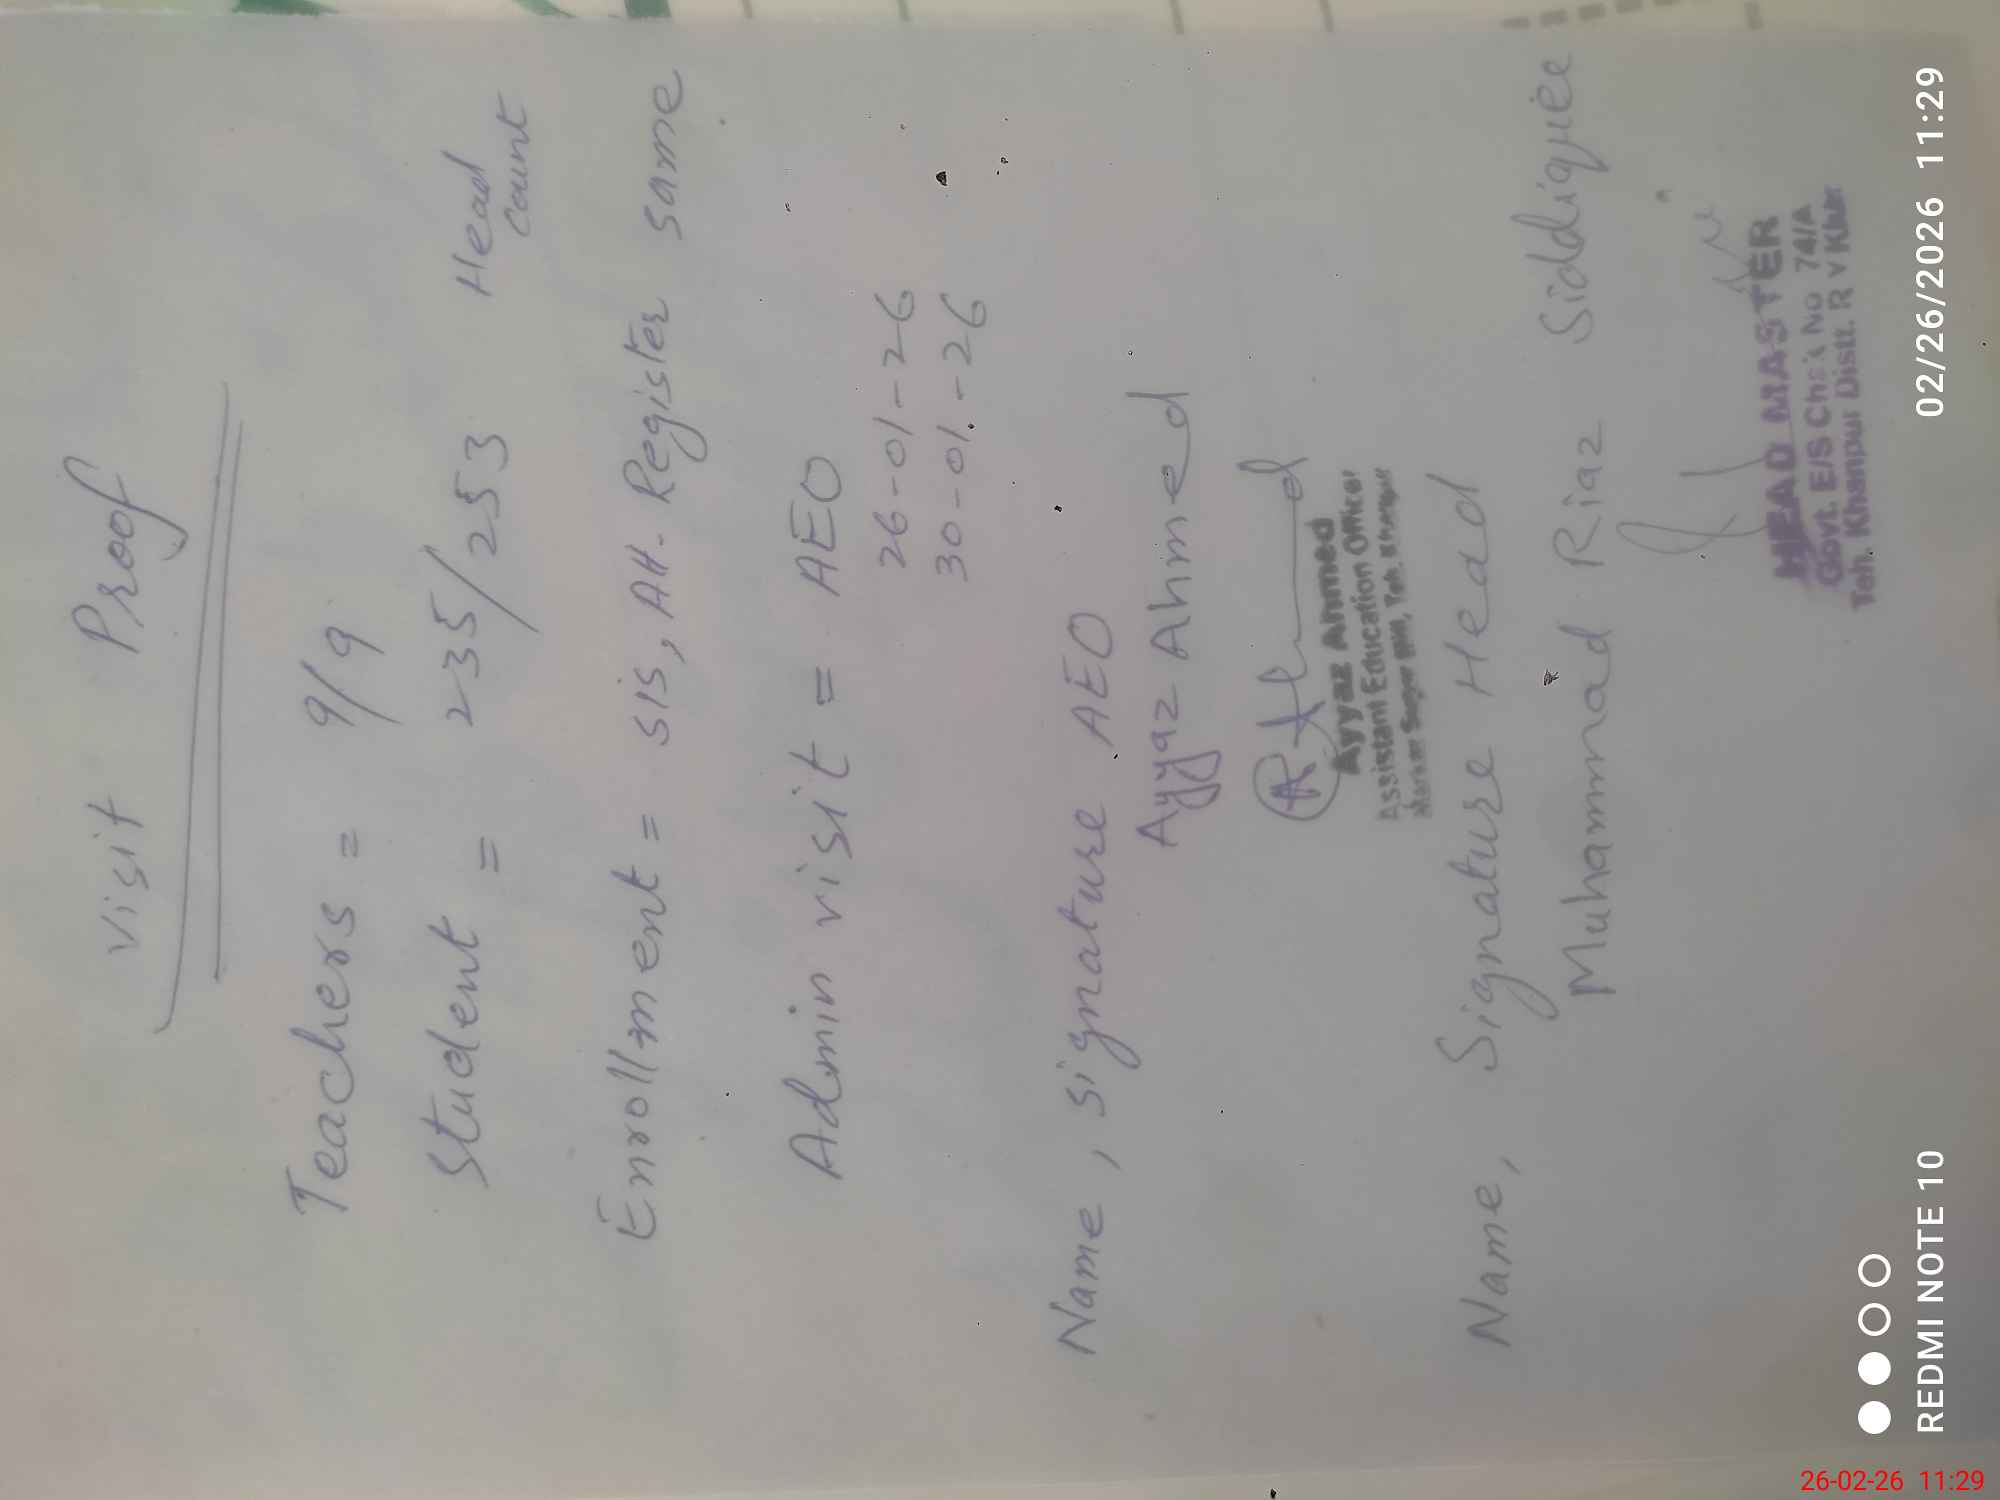 Visit Proof
Teachers = 9/9
Student = 235/253 Head count
Enrollment = SIS, AH. Register same
Admin visit = AEO
26-01-26
30-01-26
Name, signature AEO
Ayyaz Ahmed
Ayyaz Ahmed
Assistant Education Officer
Teh. Khanpur
Name, Signature Head
Muhammad Riaz Siddiquee
HEAD MASTER
Govt. E/S Chak No 74/A
Teh. Khanpur Distt. R Y Khan
REDMI NOTE 10
02/26/2026 11:29
26-02-26 11:29